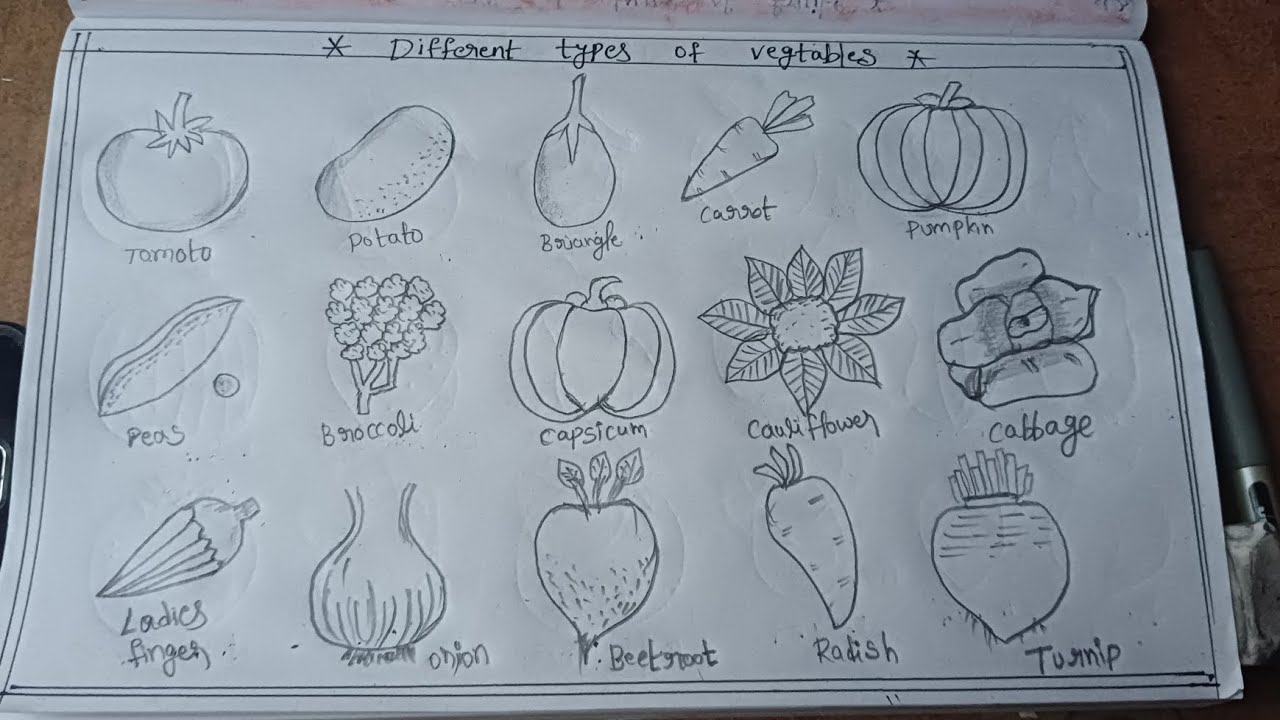 * Different types of vegtables *
Tomoto
Potato
Briangle
Carrot
Pumpkin
Peas
Broccoli
Capsicum
Cauliflower
Cabbage
Ladies
finger
onion
Beetroot
Radish
Turnip